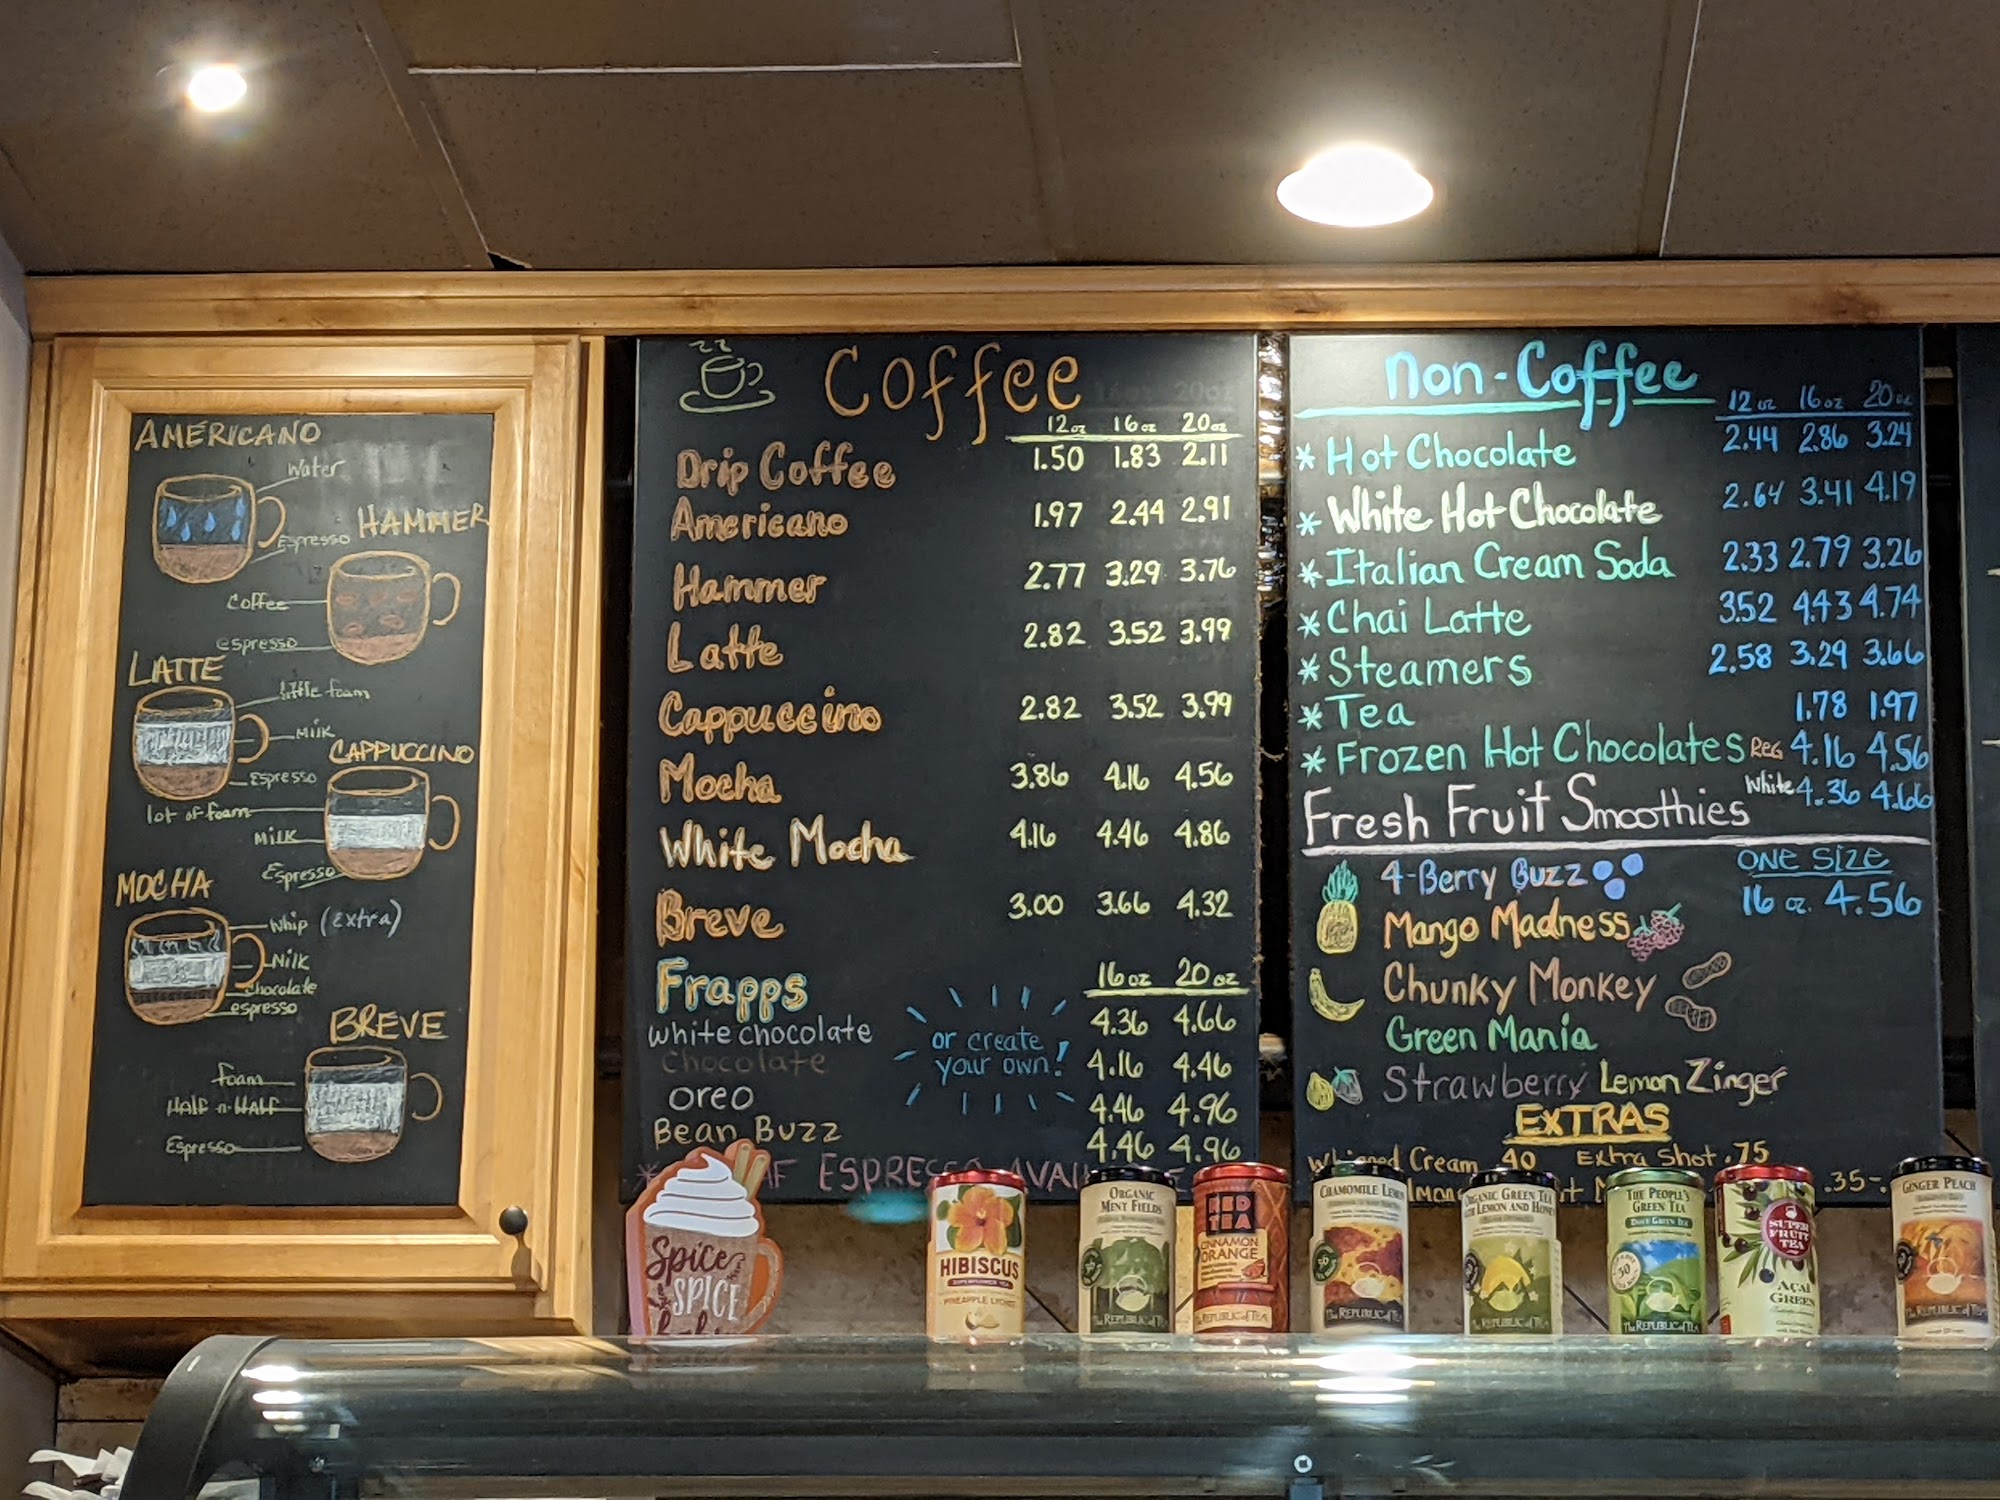 AMERICANO
Water
Espresso
HAMMER
Coffee
espresso
LATTE
little foam
Milk
Espresso
CAPPUCCINO
lot of foam
Milk
Espresso
MOCHA
Whip (Extra)
Milk
Chocolate
espresso
BREVE
foam
HALF-n-HALF
Espresso
Coffee
12oz 16oz 20oz
Drip Coffee 1.50 1.83 2.11
Americano 1.97 2.44 2.91
Hammer 2.77 3.29 3.76
Latte 2.82 3.52 3.99
Cappuccino 2.82 3.52 3.99
Mocha 3.86 4.16 4.56
White Mocha 4.16 4.46 4.86
Breve 3.00 3.66 4.32
Frapps 16oz 20oz
white chocolate 4.36 4.66
Chocolate 4.16 4.46
oreo 4.46 4.96
Bean Buzz 4.46 4.96
or create
your own!
ESPRESSO
non-Coffee
12oz 16oz 20oz
* Hot Chocolate 2.44 2.86 3.24
* White Hot Chocolate 2.64 3.41 4.19
* Italian Cream Soda 2.33 2.79 3.26
* Chai Latte 3.52 4.43 4.74
* Steamers 2.58 3.29 3.66
* Tea 1.78 1.97
* Frozen Hot Chocolates Reg 4.16 4.56
White 4.36 4.66
Fresh Fruit Smoothies
ONE SIZE
16 oz. 4.56
4-Berry Buzz
Mango Madness
Chunky Monkey
Green Mania
Strawberry Lemon Zinger
EXTRAS
Whipped Cream .40 Extra Shot .75
.35
Spice
SPICE
HIBISCUS
SUPERFLOWER TEA
PINEAPPLE LYCHEE
ORGANIC
MINT FIELDS
THE REPUBLIC of TEA
RED
TEA
CINNAMON
ORANGE
THE REPUBLIC of TEA
CHAMOMILE LEMON
THE REPUBLIC of TEA
ORGANIC GREEN TEA
LEMON AND HONEY
THE REPUBLIC of TEA
THE PEOPLE'S
GREEN TEA
THE REPUBLIC of TEA
SUPER
FRUIT
TEA
AÇAI
GREEN
GINGER PEACH
THE REPUBLIC of TEA